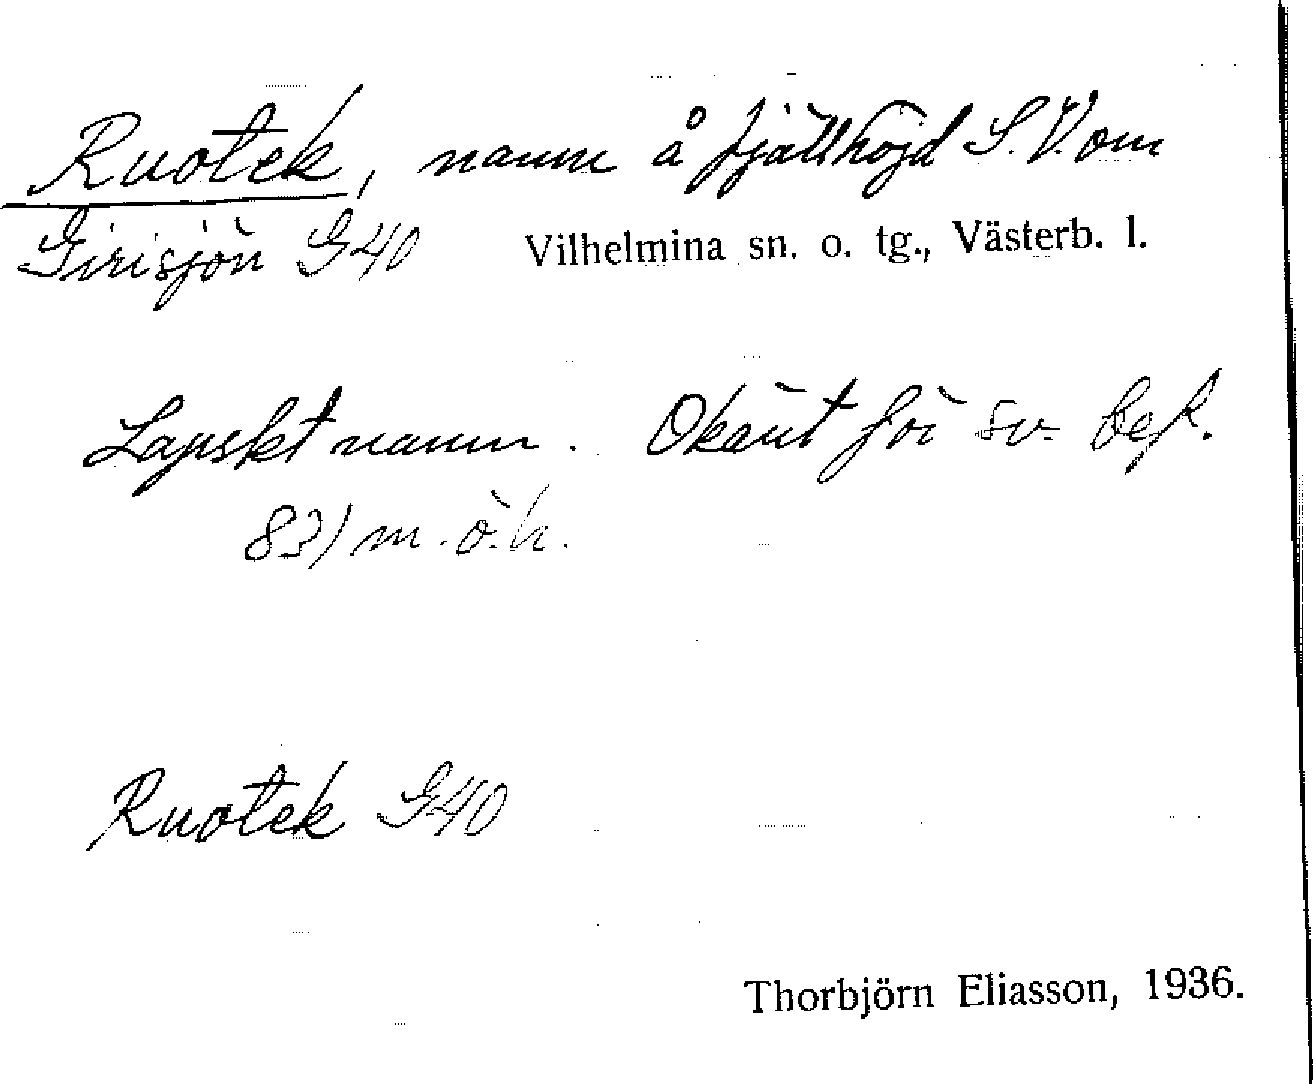 Ruotek, namn å fjällhöjd S.V. om
Girisjön G40 Vilhelmina sn. o. tg., Västerb. l.
Lapskt namn. Okänt för sv. bef.
831 m.ö.h.
Ruotek G40
Thorbjörn Eliasson, 1936.